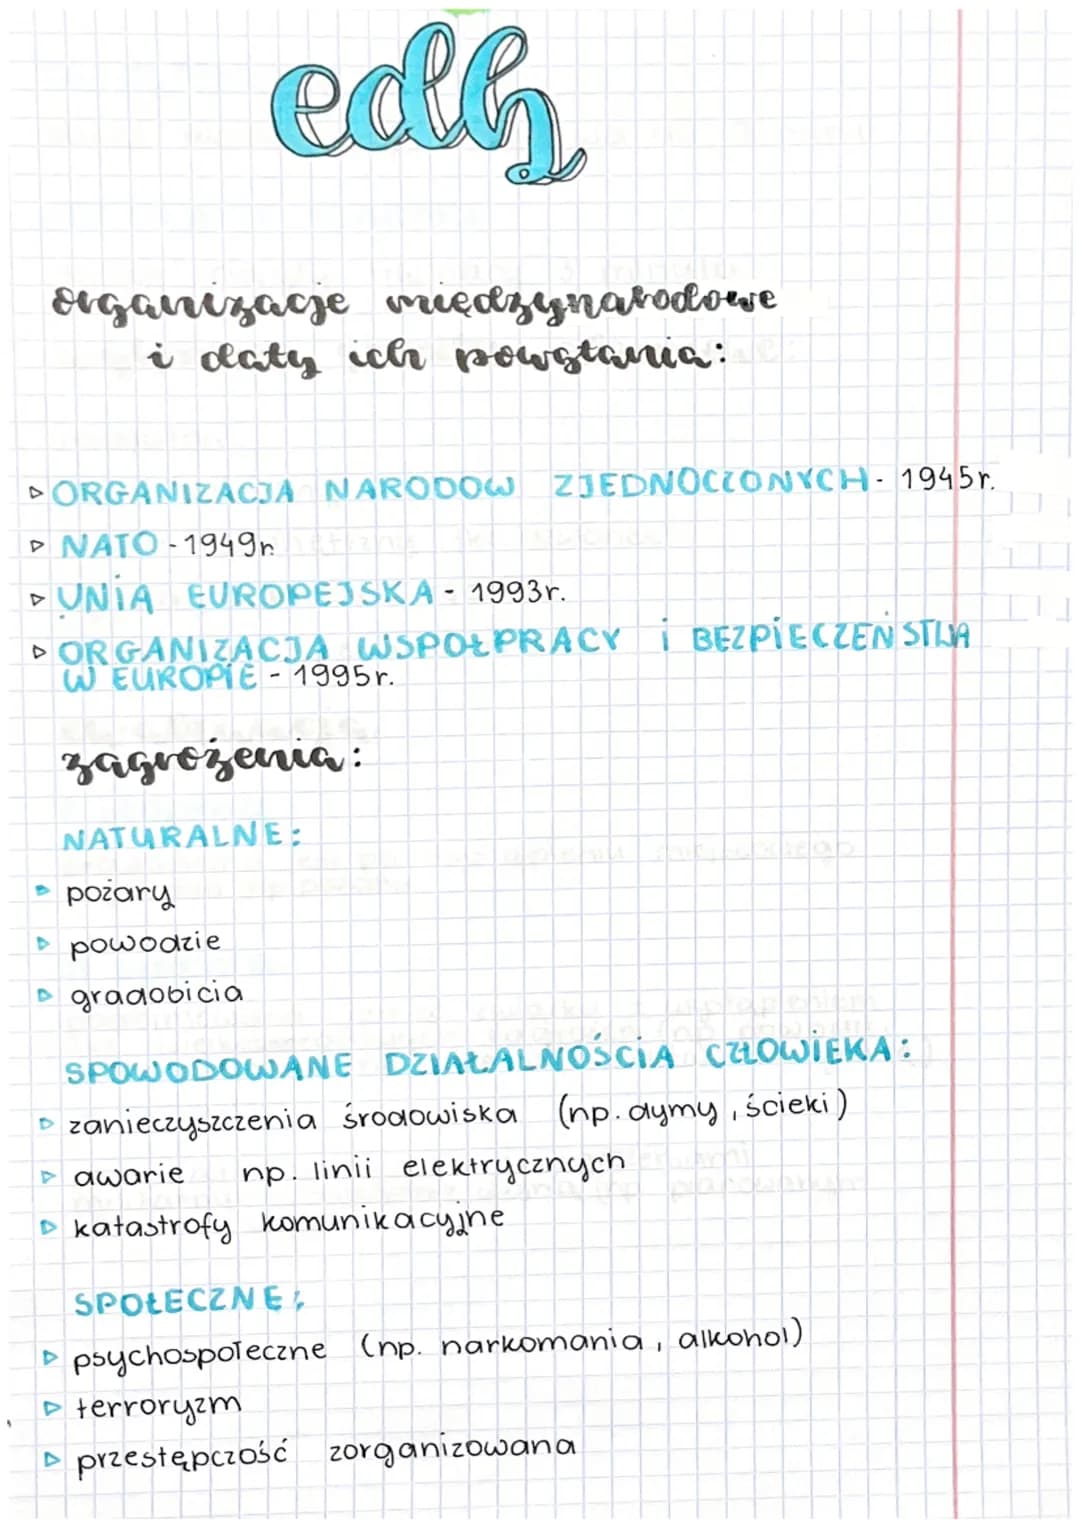 edb
organizacje międzynarodowe
i daty ich powstania:
▷ ORGANIZACJA NARODOW ZJEDNOCZONYCH - 1945r.
▷ NATO - 1949r
▷ UNIA EUROPEJSKA - 1993r.
▷ ORGANIZACJA WSPOŁPRACY i BEZPIECZEŃSTWA
W EUROPIE - 1995r.
zagrożenia:
NATURALNE:
▷ pożary
▷ powodzie
▷ gradobicia
SPOWODOWANE DZIAŁALNOŚCIĄ CZŁOWIEKA:
▷ zanieczyszczenia środowiska (np. dymy, ścieki)
▷ awarie np. linii elektrycznych
▷ katastrofy komunikacyjne
SPOŁECZNE:
▷ psychospołeczne (np. narkomania, alkohol)
▷ terroryzm
▷ przestępczość zorganizowana